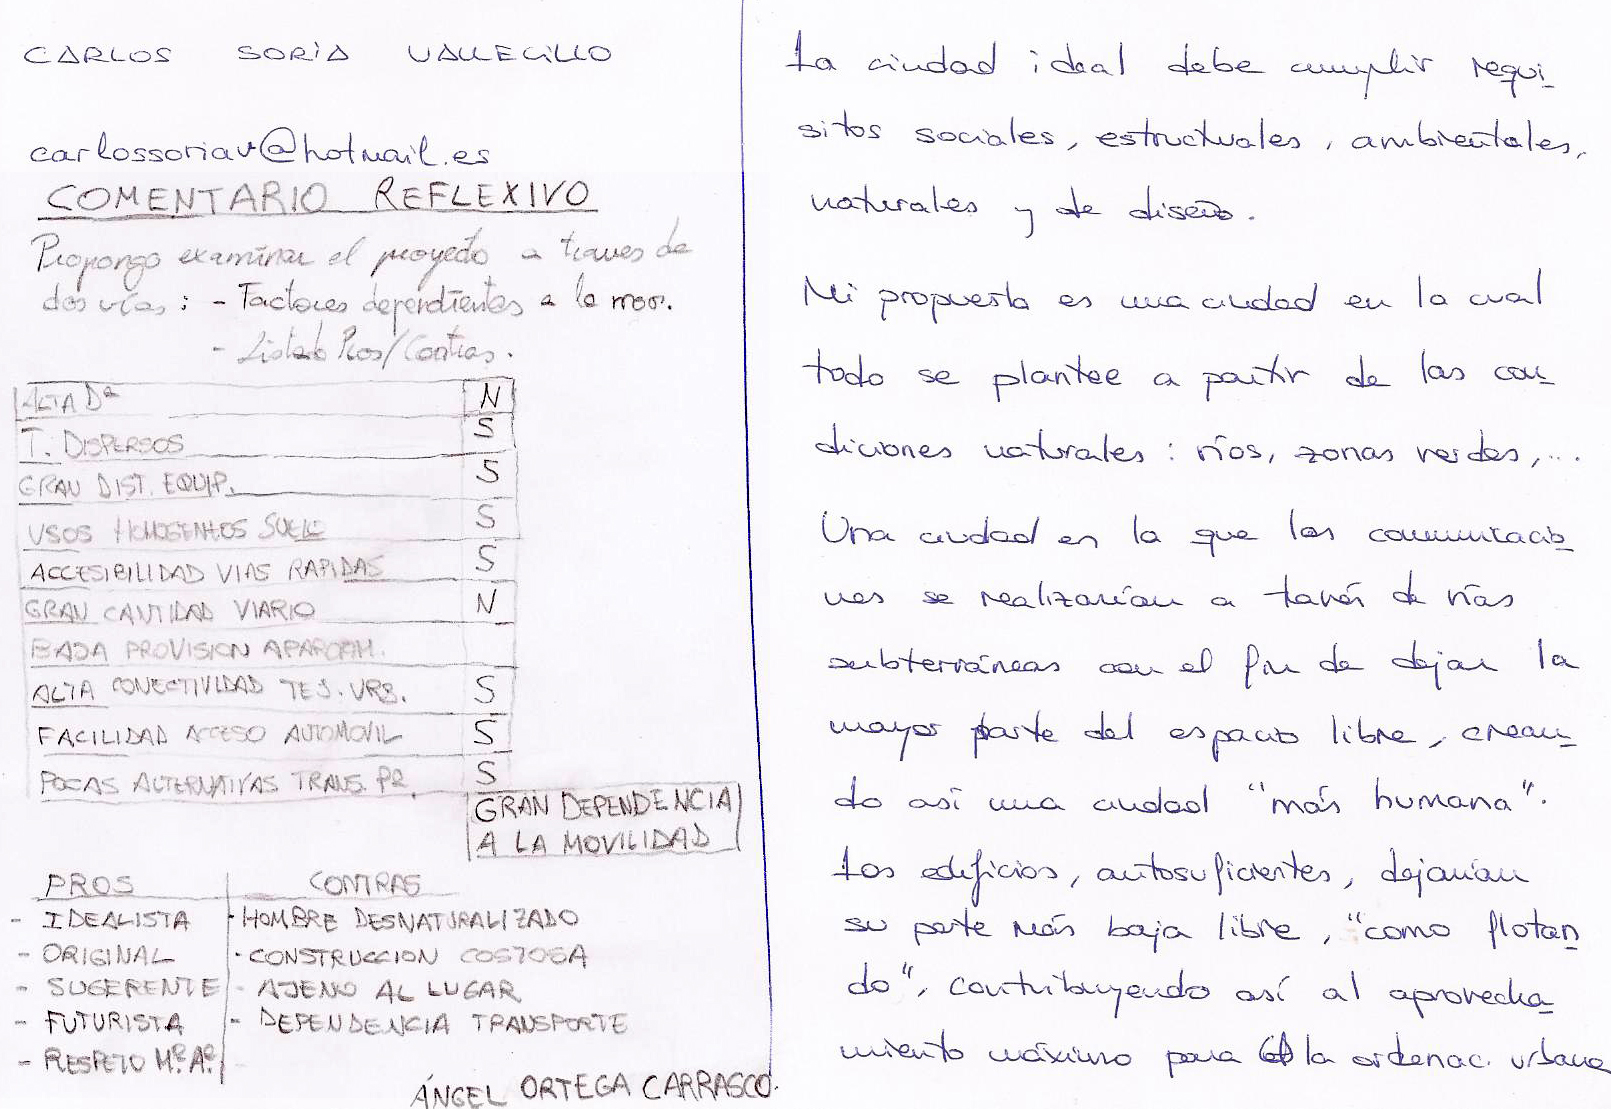 CARLOS SORIA VALLECILLO
carlossoriav@hotmail.es
COMENTARIO REFLEXIVO
Propongo examinar el proyecto a traves de
dos vías: - Factores dependientes a la mov.
- Listado Pros/Contras.
ALTA Dª N
T. DISPERSOS S
GRAN DIST. EQUIP. S
USOS HOMOGENEOS SUELO S
ACCESIBILIDAD VIAS RAPIDAS S
GRAN CANTIDAD VIARIO N
BAJA PROVISION APARCAM.
ALTA CONECTIVIDAD TEJ. URB. S
FACILIDAD ACCESO AUTOMOVIL S
POCAS ALTERNATIVAS TRANS. PR. S
GRAN DEPENDENCIA
A LA MOVILIDAD
PROS CONTRAS
- IDEALISTA - HOMBRE DESNATURALIZADO
- ORIGINAL - CONSTRUCCION COSTOSA
- SUGERENTE - AJENO AL LUGAR
- FUTURISTA - DEPENDENCIA TRANSPORTE
- RESPETO Mº.Aº.
ÁNGEL ORTEGA CARRASCO.
La ciudad ideal debe cumplir requi
sitos sociales, estructuales, ambientales,
naturales y de diseño.
Mi propuesta es una ciudad en la cual
todo se plantee a partir de las con
diciones naturales: ríos, zonas verdes,...
Una ciudad en la que las comunicacio
nes se realizarían a través de vías
subterráneas con el fin de dejar la
mayor parte del espacio libre, crean
do así una ciudad "más humana".
Los edificios, autosuficientes, dejarían
su parte más baja libre, "como flotan
do", contribuyendo así al aprovecha
miento máximo para la ordenac. urbana